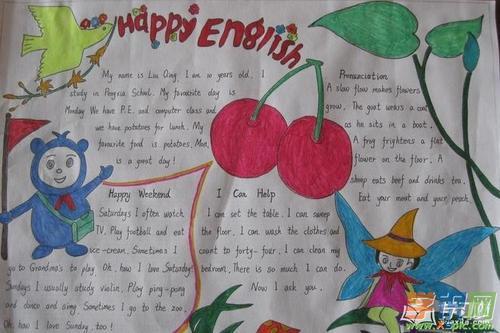 Happy English
My name is Liu Qing, I am 10 years old. I
study in Pengxia School. My favourite day is
Monday. We have P.E. and computer class and
we have potatoes for lunch. My
favourite food is potatoes. Mon.
is a great day!
Happy Weekend
Saturdays I often watch
TV. Play football and eat
ice-cream. Sometimes I
go to Grandma's to play. Oh, hao I love Saturday!
Sundays I usually study violin. Play ping-pung
and dance and aimg. Sometimes I go to the zoo.
Oh, hao I love Sunday too!
I Can Help
I can set the table. I can sweep
the floor. I can wash the clothes and
count to forty-four. I can clean my
bedroom. There is so much I can do.
Now I ask you.
Pronunciation
A slow flow makes flowers
grow. The goat wears a coat
as he sits in a boat.
A frog frightens a flat
flower on the floor. A
sheep eats beef and drinks tea.
Eat your meat and your peach.